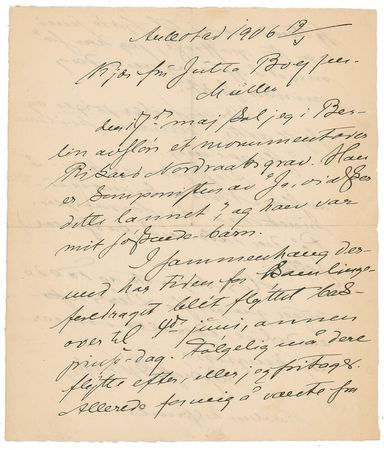 Aulestad 1906 13/5
Kjære frú Jutta Bojsen-
Möller
den 17de maj skal jeg i Ber-
lin avsløre et monument over
Rikard Nordraaks grav. Han
er komponisten av "Ja, vi elsker
dette landet", og han var
mit søskende barn.
I sammenhæng der-
med har tiden for
foredraget blit flyttet
over til 4de júni, annen
pinse-dag. Følgelig må dere
flytte efter, eller jeg fritages.
Allerede for mig å vente fra